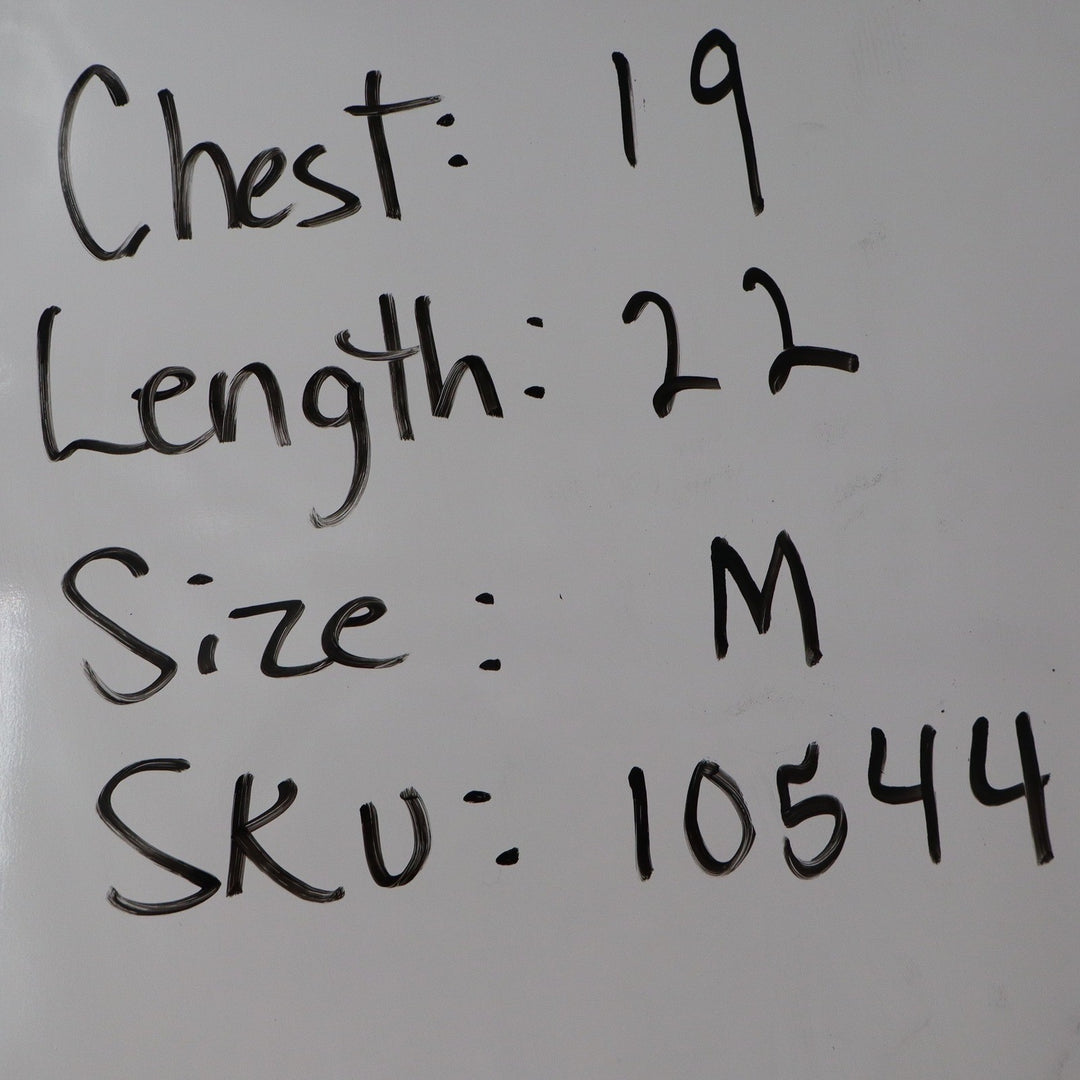 Chest: 19
Length: 22
Size: M
SKU: 10544